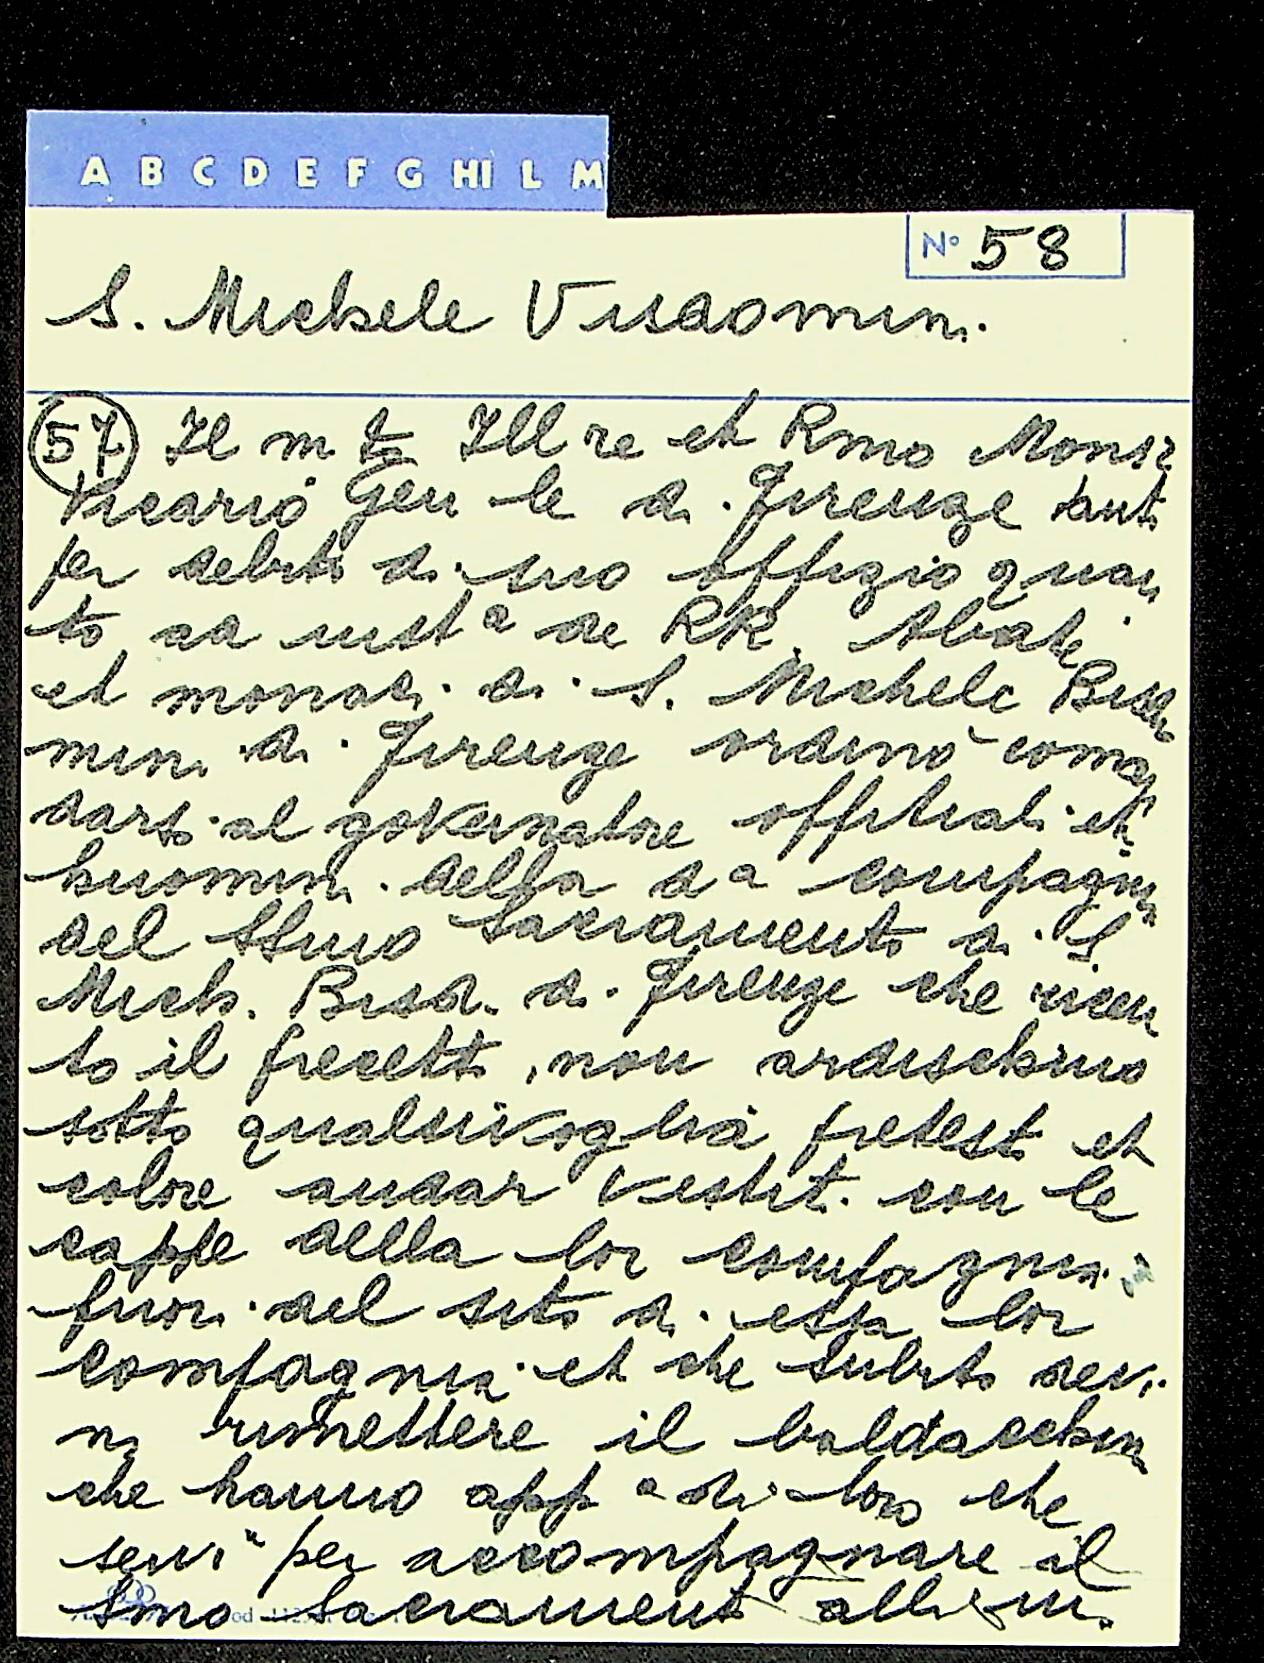 A B C D E F G HI L M
N° 58
S. Michele Visdomini.
57 Il m. to Ill re et Rmo Monsr
Vicario Gen le di Firenze tanto
per debito di suo offizio quan
to ad inst a de RR. Abate
et monaci di S. Michele Bisdo
mini di Firenze ordinò coman
darsi al governatore offitiali et
huomini della da compagnia
del SSmo Sacramento di S.
Mich. Bisd. di Firenze che riceu
to il precetto, non ardischino
sotto qualsivoglia pretesto et
colore andar vestiti con le
cappe della lor compagnia
fuori del sito di essa lor
compagnia et che subito devi
no rimettere il baldacchino
che hanno app a di loro che
servi per accompagnare il
Smo Sacramento